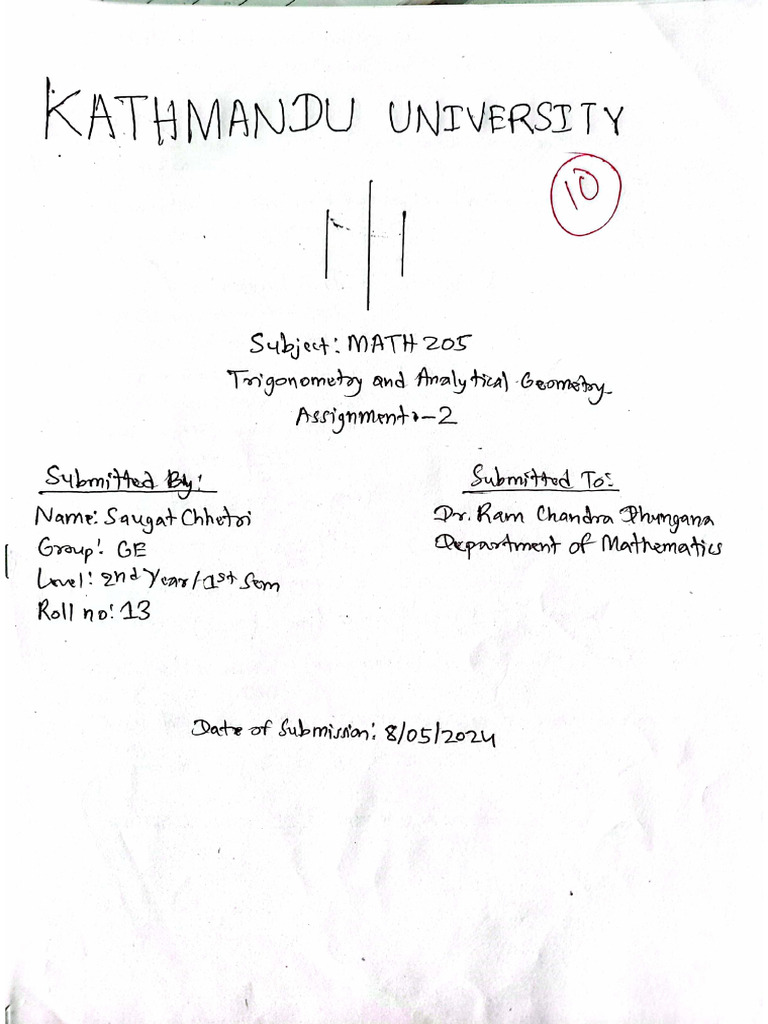 KATHMANDU UNIVERSITY
10
Subject: MATH 205
Trigonometry and Analytical Geometry
Assignment:-2
Submitted By:
Name: Saugat Chhetri
Group: GE
Level: 2nd Year/1st Sem
Roll no: 13
Submitted To:
Dr. Ram Chandra Dhungana
Department of Mathematics
Date of Submission: 8/05/2024